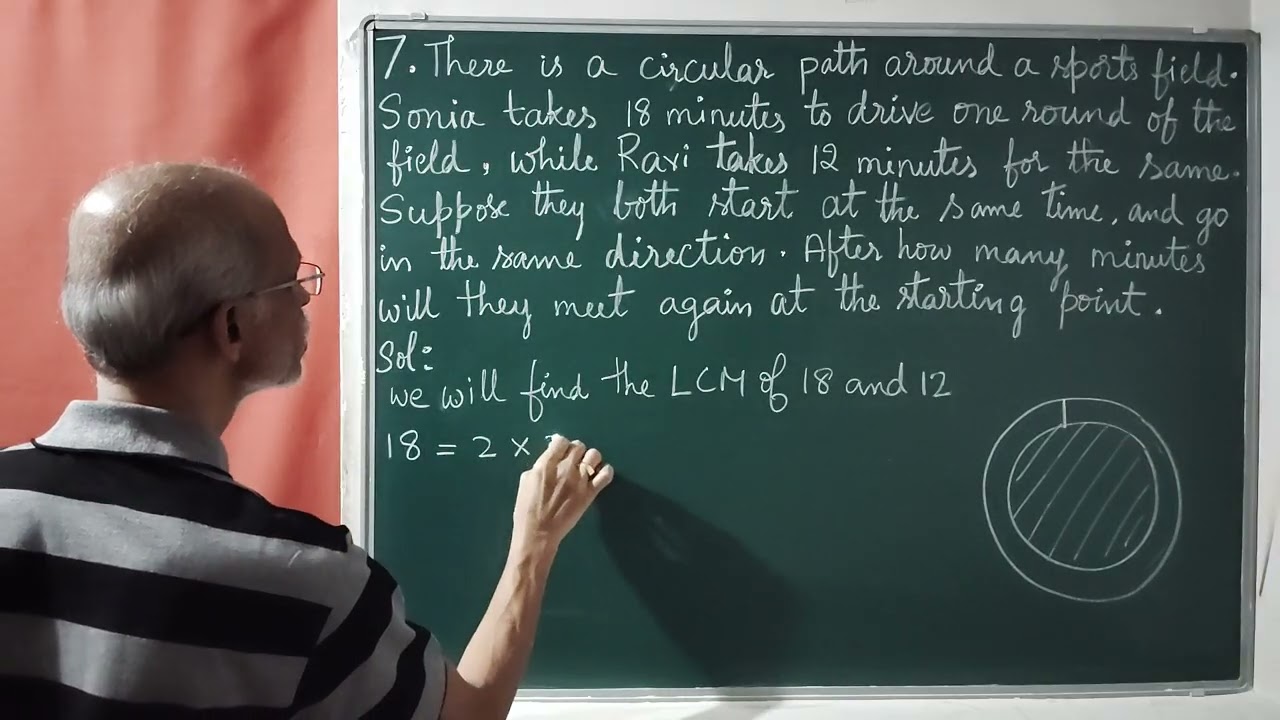 7. There is a circular path around a sports field.
Sonia takes 18 minutes to drive one round of the
field, while Ravi takes 12 minutes for the same.
Suppose they both start at the same time, and go
in the same direction. After how many minutes
will they meet again at the starting point.
Sol:
we will find the LCM of 18 and 12
18 = 2 ×